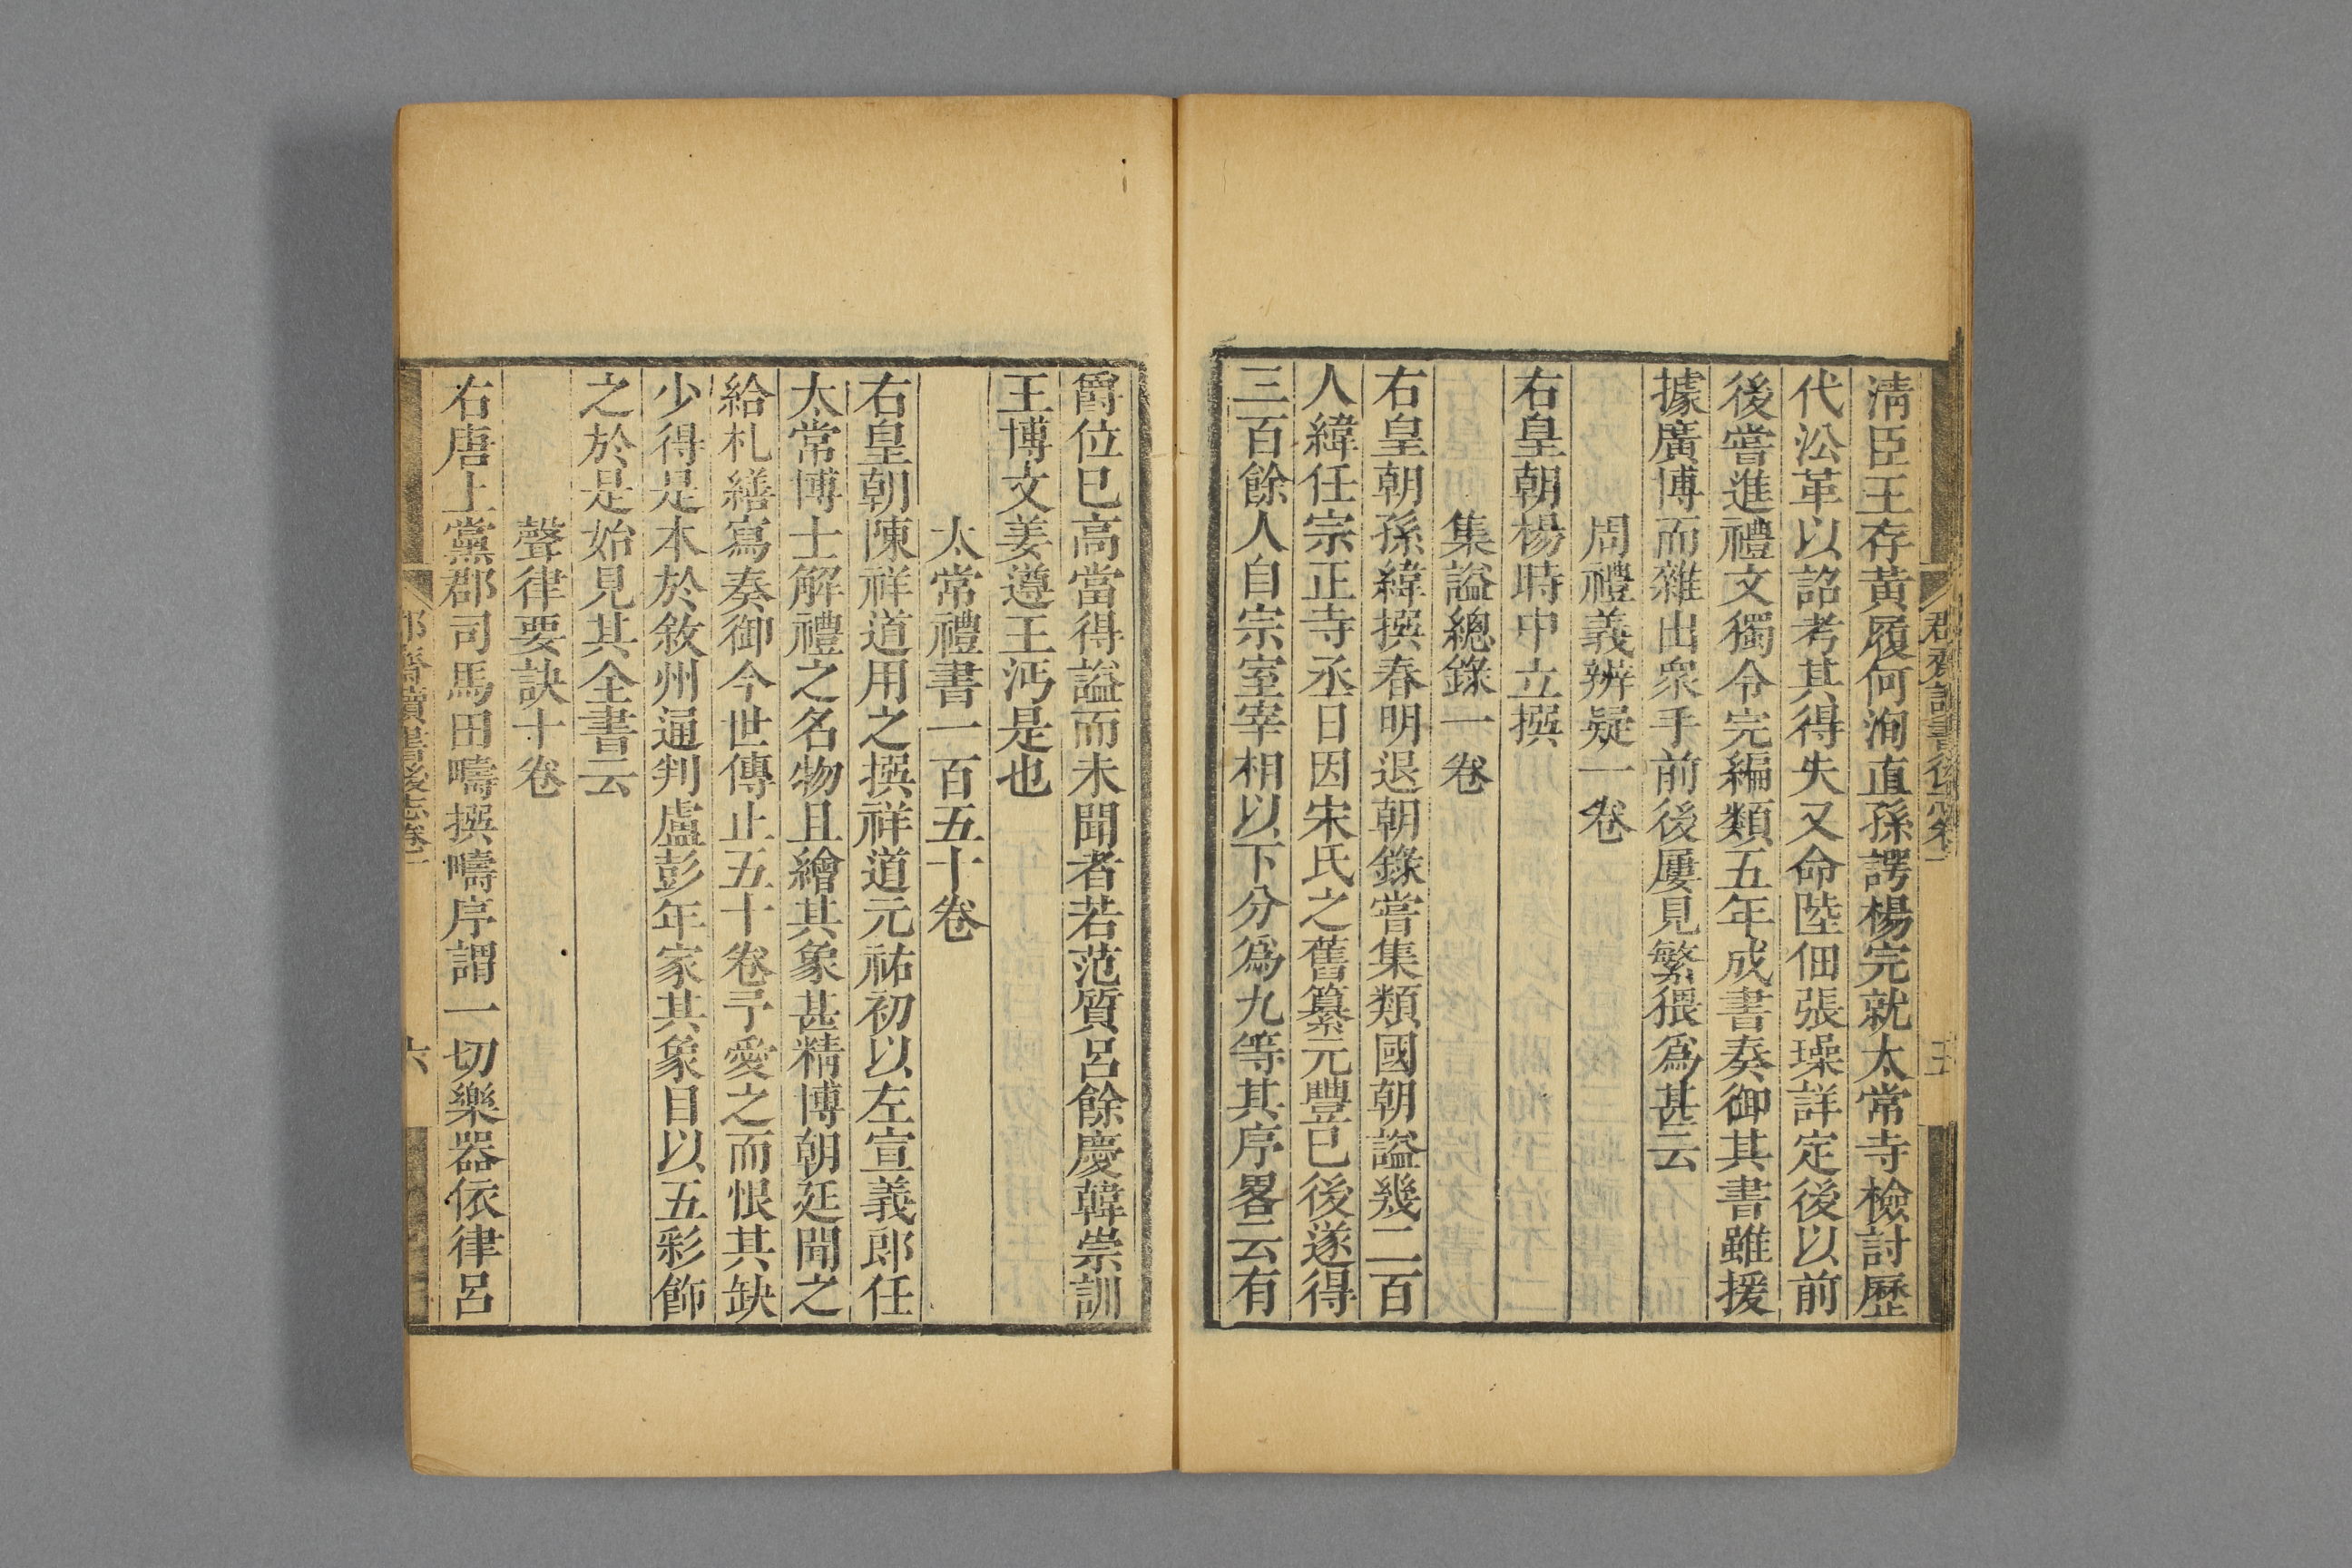 清臣王存黃履何洵直孫諤楊完就太常寺檢討歷
代㳂革以詔考其得失又命陸佃張璪詳定後以前
後嘗進禮文獨令完編類五年成書奏御其書雖援
據廣博而雜出衆手前後屢見繁猥爲甚云
周禮義辨疑一卷
右皇朝楊時中立撰
集謚總錄一卷
右皇朝孫緯撰春明退朝錄嘗集類國朝謚幾二百
人緯任宗正寺丞日因宋氏之舊纂元豐已後遂得
三百餘人自宗室宰相以下分爲九等其序畧云有
爵位已高當得謚而未聞者若范質呂餘慶韓崇訓
王博文姜遵王沔是也
太常禮書一百五十卷
右皇朝陳祥道用之撰祥道元祐初以左宣義郎任
太常博士解禮之名物且繪其象甚精博朝廷聞之
給札繕寫奏御今世傳止五十卷予愛之而恨其缺
少得是本於敘州通判盧彭年家其象目以五彩飾
之於是始見其全書云
聲律要訣十卷
右唐上黨郡司馬田疇撰疇序謂一切樂器依律呂
讀書後志卷一
六